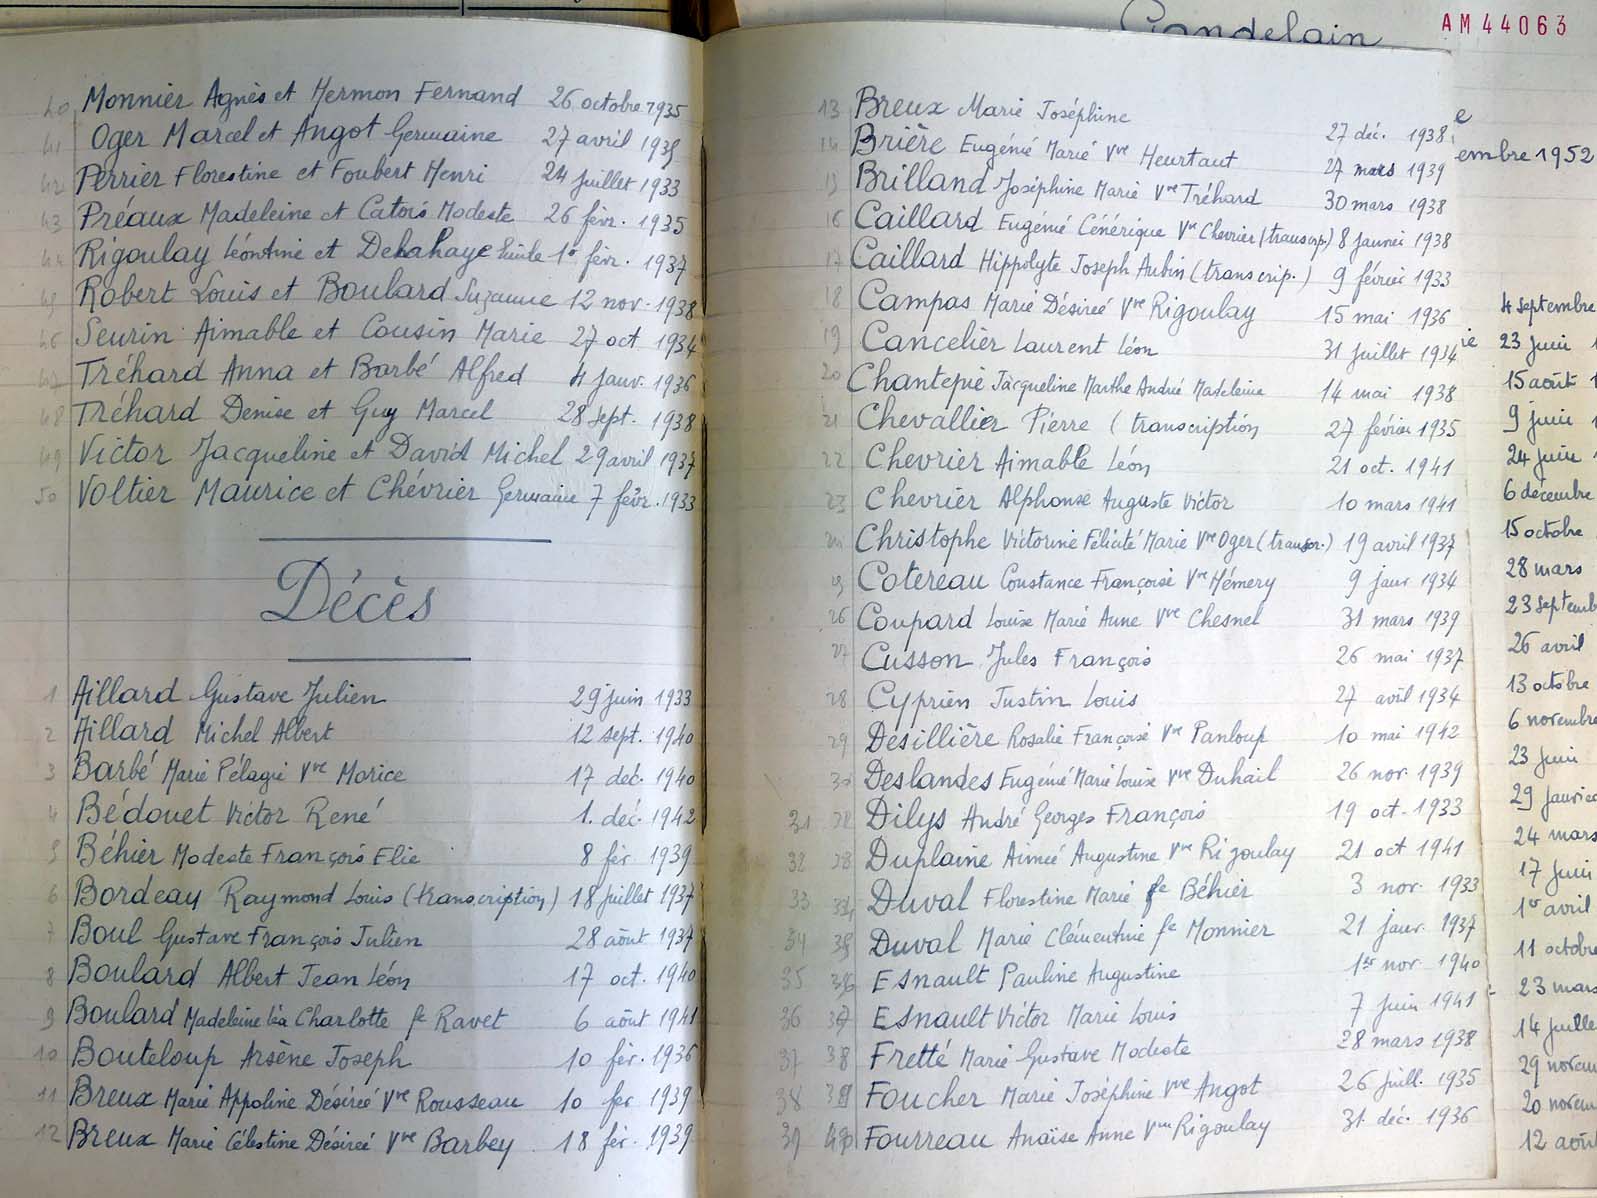 40 Monnier Agnès et Hermon Fernand 26 octobre 1935
41 Oger Marcel et Angot Germaine 27 avril 1935
42 Perrier Florestine et Foubert Henri 24 juillet 1933
43 Préaux Madeleine et Catois Modeste 26 févr. 1935
44 Rigoulay Léontine et Delahaye 1er févr. 1937
45 Robert Louis et Boulard Suzanne 12 nov. 1938
46 Seurin Aimable et Cousin Marie 27 oct 1934
47 Tréhard Anna et Barbé Alfred 4 janv. 1936
48 Tréhard Denise et Guy Marcel 28 sept. 1938
49 Victor Jacqueline et David Michel 29 avril 1937
50 Voltier Maurice et Chévrier Germaine 7 févr. 1933
Décès
1 Aillard Gustave Julien 29 juin 1933
2 Aillard Michel Albert 12 sept. 1940
3 Barbé Marie Pélagie Vve Morice 17 déc. 1940
4 Bédouet Victor René 1. déc. 1942
5 Béhier Modeste François Elie 8 fév. 1939
6 Bordeau Raymond Louis (transcription) 18 juillet 1937
7 Boul Gustave François Julien 28 août 1937
8 Boulard Albert Jean Léon 17 oct. 1940
9 Boulard Madeleine Léa Charlotte fe Ravet 6 août 1941
10 Bouteloup Arsène Joseph 10 fév. 1936
11 Breux Marie Appoline Désirée Vve Rousseau 10 fev 1939
12 Breux Marie Célestine Désirée Vve Barbey 18 fév. 1939
Gandelain
AM44063
13 Breux Marie Joséphine 27 déc. 1938
14 Brière Eugénie Marie Vve Heurtaut 27 mars 1939
15 Brilland Joséphine Marie Vve Tréhard 30 mars 1938
16 Caillard Eugénie Cénérique Vve Chevrier (transcrip.) 8 janvier 1938
17 Caillard Hippolyte Joseph Aubin (transcrip.) 9 février 1933
18 Campas Marie Désireé Vve Rigoulay 15 mai 1936
19 Cancelier Laurent Léon 31 juillet 1934
20 Chantepie Jacqueline Marthe André Madeleine 14 mai 1938
21 Chevallier Pierre (transcription 27 février 1935
22 Chevrier Aimable Léon 21 oct. 1941
23 Chevrier Alphonse Auguste Victor 10 mars 1941
24 Christophe Victorine Félicité Marie Vve Oger (transcr.) 19 avril 1937
25 Cotereau Constance Françoise Vve Hémery 9 janv 1934
26 Coupard Louise Marie Anne Vve Chesnel 31 mars 1939
27 Cusson Jules François 26 mai 1937
28 Cyprien Justin Louis 27 avril 1934
29 Désillière Rosalie Françoise Vve Panloup 10 mai 1942
30 Deslandes Eugénie Marie Louise Vve Duhail 26 nov. 1939
31 Dilys André Georges François 19 oct. 1933
32 Duplaine Aimée Augustine Vve Rigoulay 21 oct 1941
33 Duval Florestine Marie fe Béhier 3 nov. 1933
34 35 Duval Marie Clémentine fe Monnier 21 janv. 1937
35 36 Esnault Pauline Augustine 1er nov. 1940
36 37 Esnault Victor Marie Louis 7 juin 1941
37 38 Fretté Marie Gustave Modeste 28 mars 1938
38 39 Foucher Marie Joséphine Vve Angot 26 juill. 1935
39 40 Fourreau Anaïse Anne Vve Rigoulay 31 déc. 1936
e
embre 1952
4 septembre
ie 23 juin
15 août
9 juin
24 juin
6 décembre
15 octobre
28 mars
23 septemb
26 avril
13 octobre
6 novembre
23 juin
29 janvie
24 mars
17 juin
1er avril
11 octobre
23 mars
14 juille
29 novem
20 novem
12 août